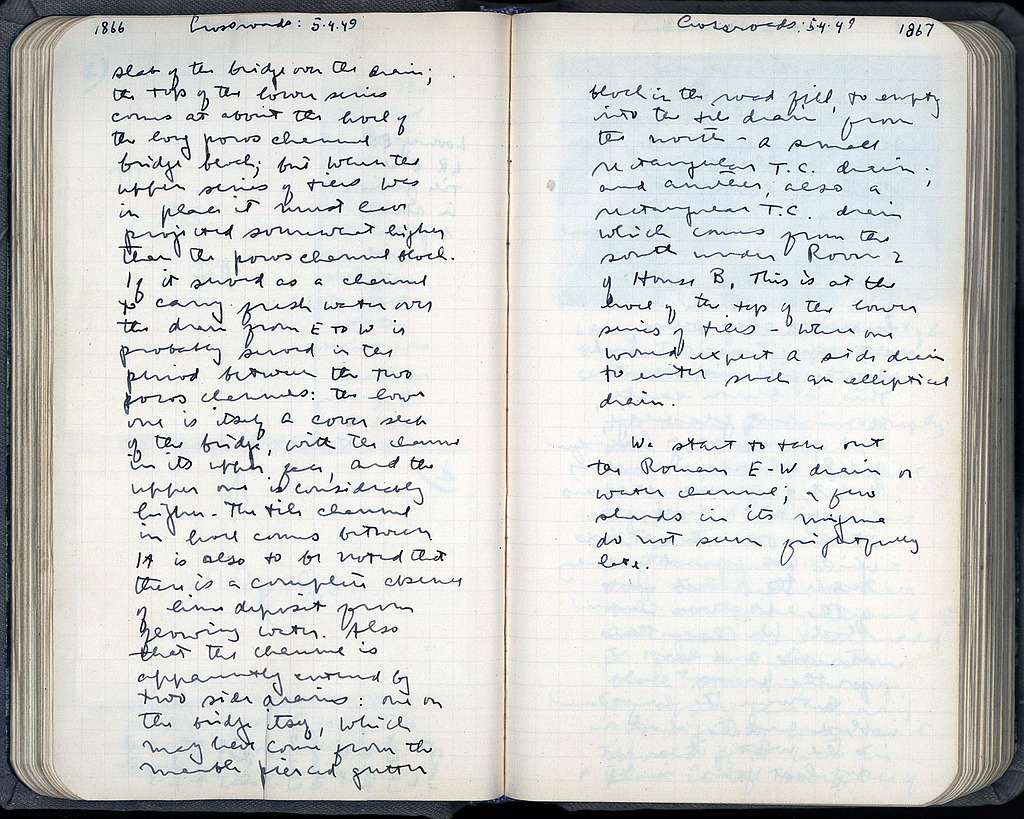 1866 Crossroads: 5.4.49
slab of the bridge over the drain;
the top of the lower series
comes at about the level of
the long poros channel
bridge block; but when the
upper series of tiles was
in place it must have
projected somewhat higher
than the poros channel block.
If it served as a channel
to carry fresh water over
the drain from E to W it
probably served in the
period between the two
poros channels: the lower
one is itself a cover slab
of the bridge, with the channel
in its upper face, and the
upper one is considerably
higher. The tile channel
in level comes between
It is also to be noted that
there is a complete absence
of lime deposit from
flowing water. Also
that the channel is
apparently entered by
two side drains: one on
the bridge itself, which
may have come from the
marble pierced gutter
Crossroads: 5.4.49 1867
block in the road fill, to empty
into the tile drain, from
the north - a small
rectangular T.C. drain;
and another, also a
rectangular T.C. drain
which comes from the
south under Room 2
of House B. This is at the
level of the top of the lower
series of tiles - where one
would expect a side drain
to enter such an elliptical
drain.
We start to take out
the Roman E-W drain or
water channel; a few
sherds in its
do not seem frightfully
late.